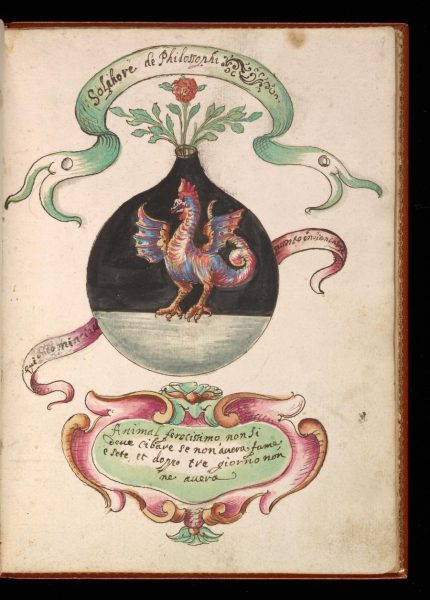 Solphore de Philosophi
Animal ferocissimo non si
deue cibare se non auera fame
e sete, et doppo tre giorno non
ne auera